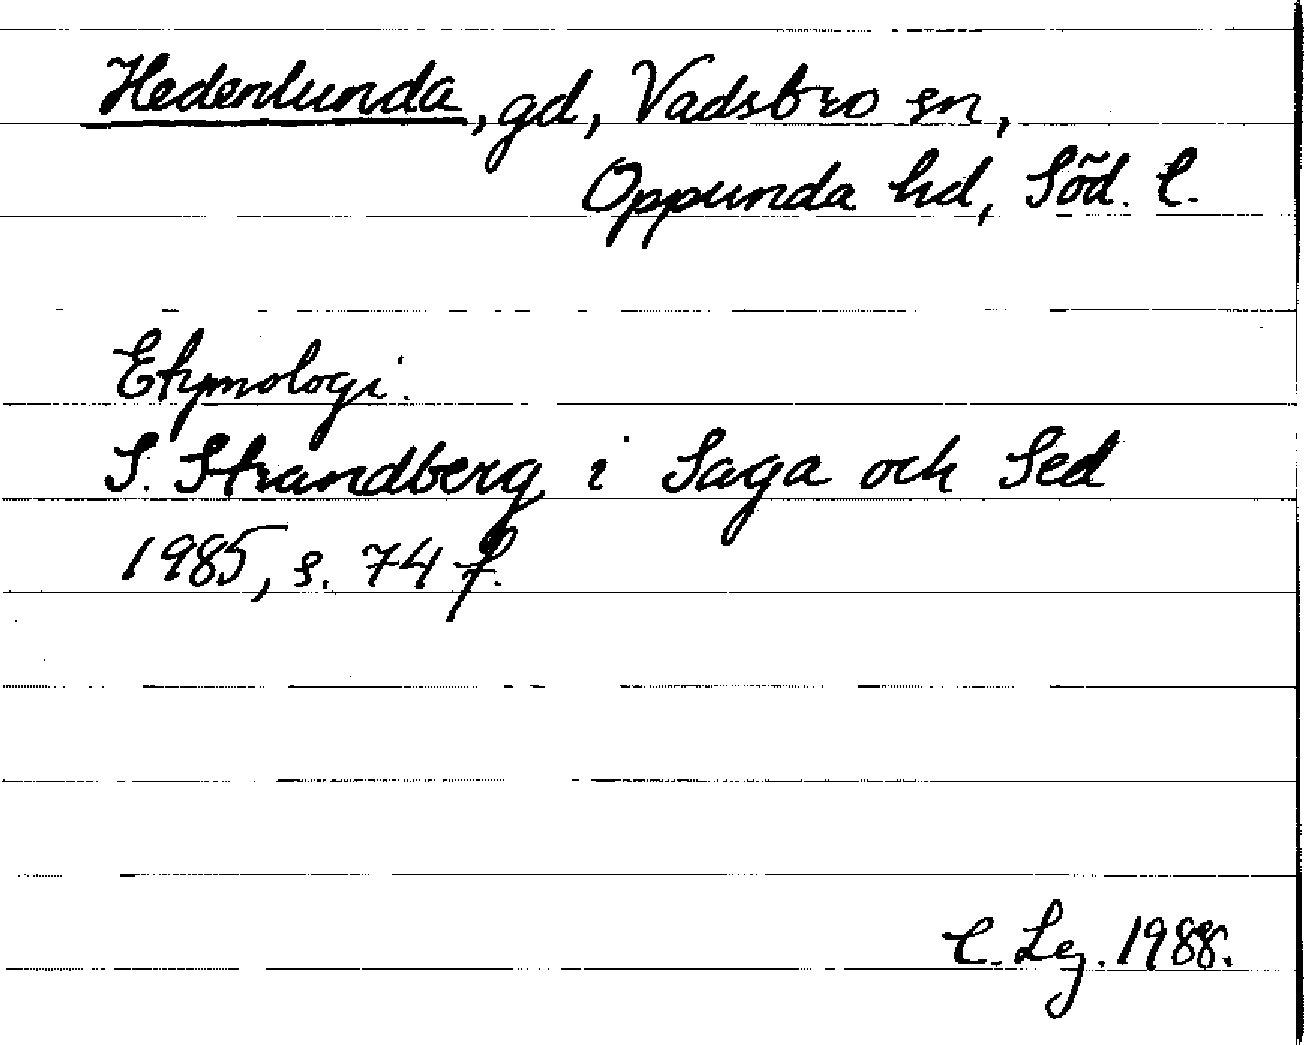 Hedenlunda, gd, Vadsbro sn,
Oppunda hd, Söd. l.
Etymologi.
S. Strandberg i Saga och Sed
1985, s. 74 f.
C. Lej. 1988.